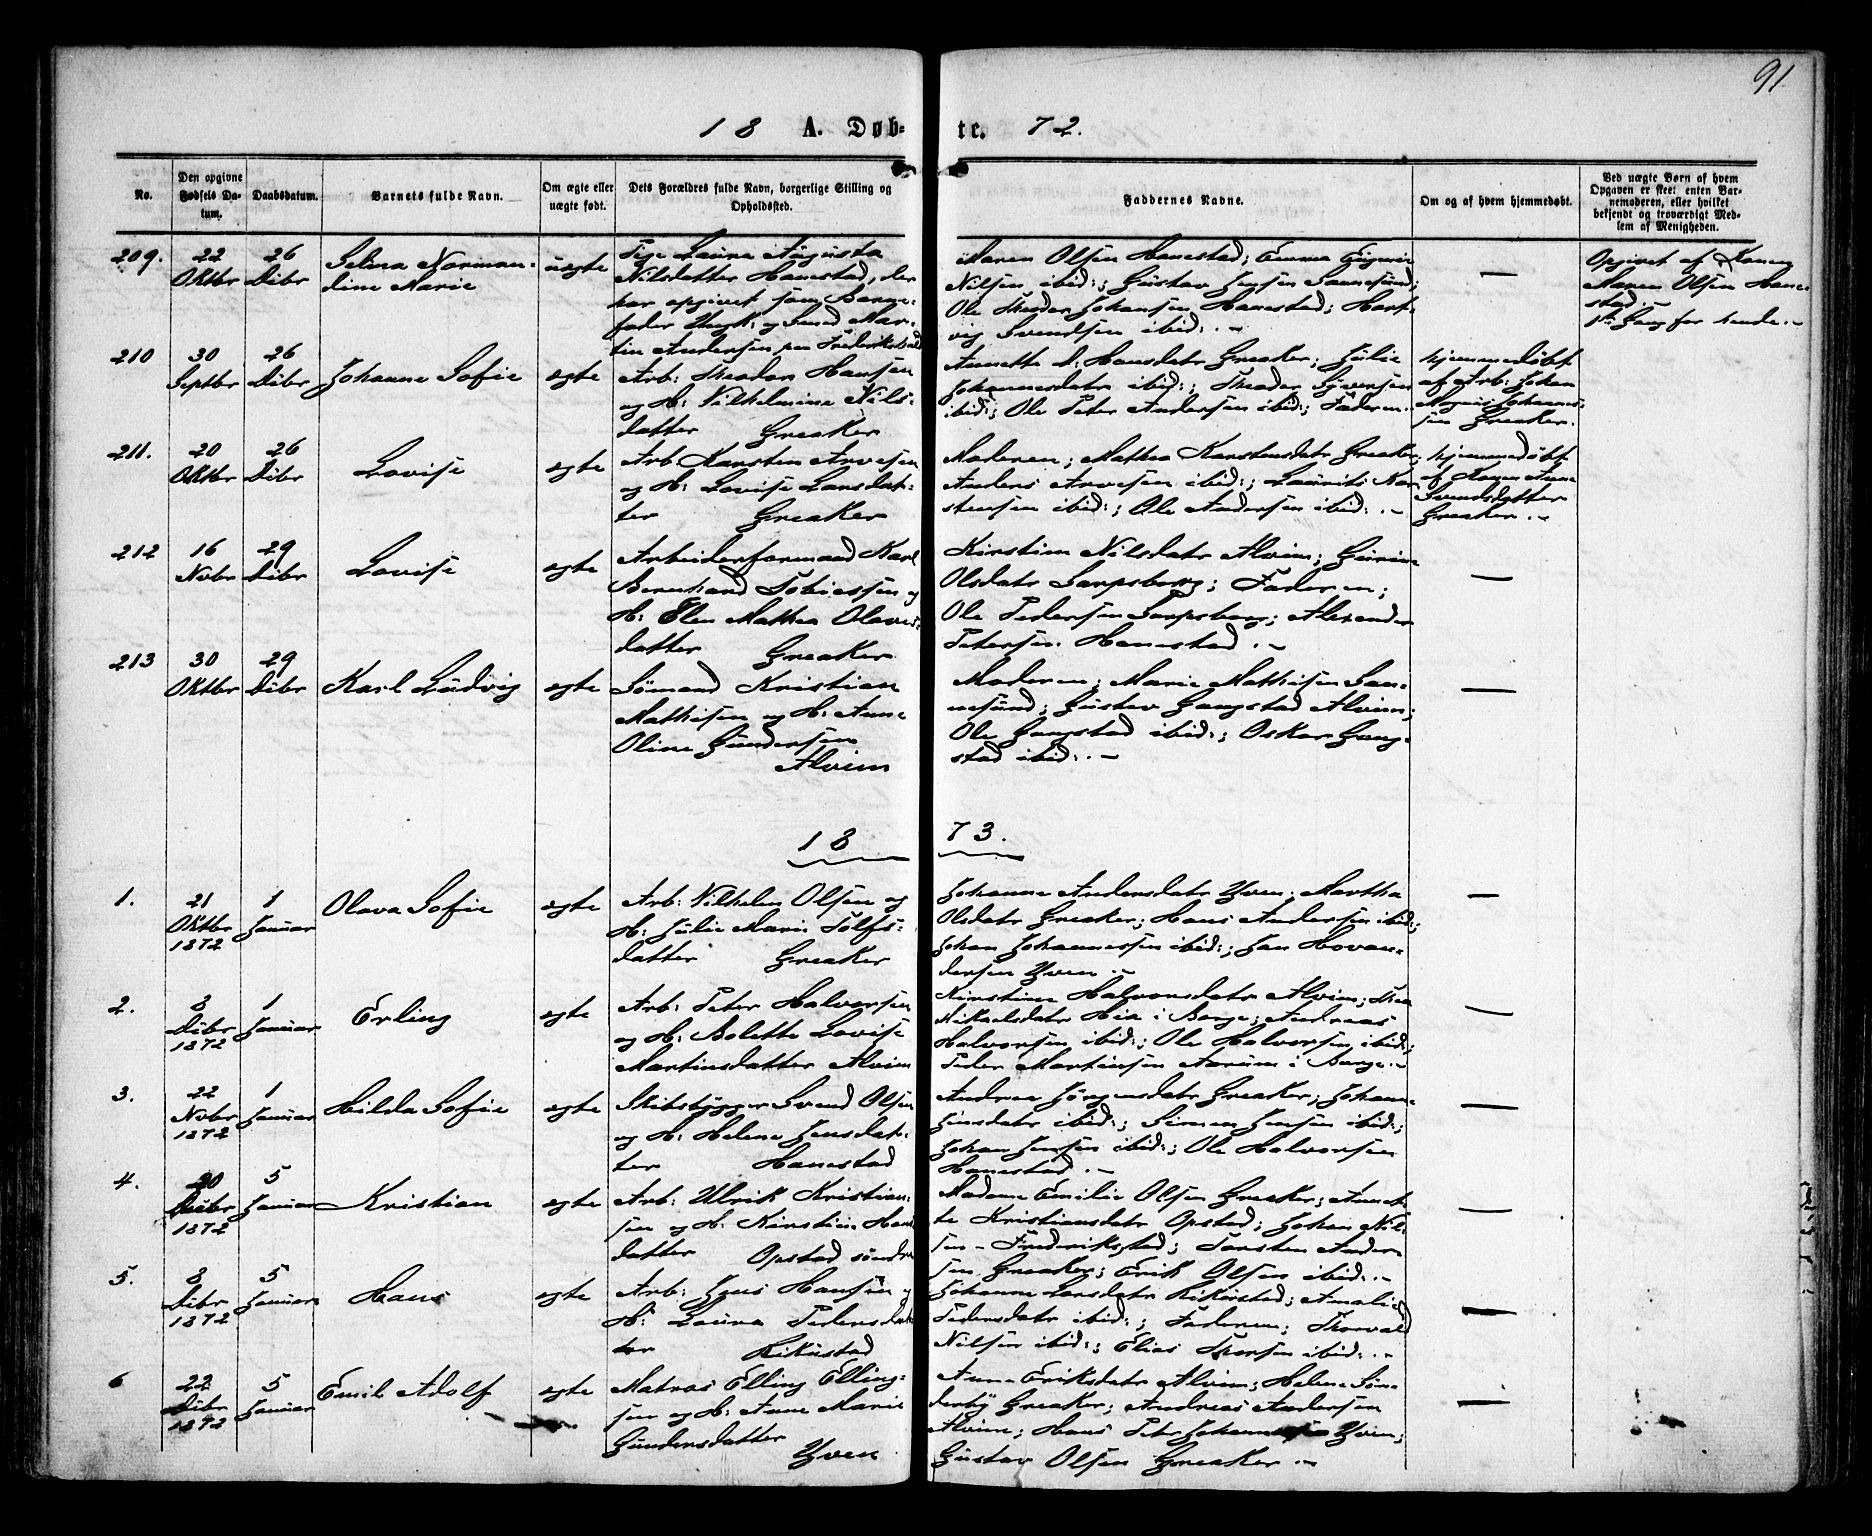 91.
18 A. Døb- te. 72.
No.
Den opgivne Fødsels Da- tum.
Daabsdatum.
Barnets fulde Navn.
Om ægte eller uægte født.
Dets Forældres fulde Navn, borgerlige Stilling og Opholdssted.
Faddernes Navne.
Om og af hvem hjemmedøbt.
Ved uægte Børn af hvem Opgaven er skeet enten Bar- nemoderen, eller hvilket bekjendt og troværdigt Med- lem af Menigheden.
209. 22 Oktbr 26 Dcbr Selma Norman- dine Marie uægte
Pige Laura Augusta
Nilsdatter Hanestad, der
har opgivet som Barne-
fader Ungk: og Smed Mar-
tin Andersen paa Frederikshald
Maren Olsen Hanestad; Emma
Nilsen ibid:; Gustav Jensen Sannesund;
Ole Theodor Johansen Hanestad; Hart-
vig Svendsen ibid: .-
—
Opgivet af Konen
Maren Olsen Hane-
stad.
1ste Gang for hende.-
210 30 Septbr 26 Dcbr Johanne Sofie ægte
Arb: Theodor Hansen
og H: Vilhelmine Nils-
datter Greaker
Annette d: Hansdatr Greaker; Julie
Johannesdatr ibid:; Theodor Syversen
ibid:; Ole Peter Andersen ibid:; Faderen.
hjemmedøbt
af Arb: Johan
Magnus Johannes-
sen Greaker.
211. 20 Oktbr 26 Dcbr Lovise ægte
Arb. Karsten Arvesen
og H: Lovise Larsdat-
ter Greaker
Moderen; Mathea Karstensdatr Greaker;
Anders Arvesen ibid:; Laurits Kar-
stensen ibid:; Ole Andersen ibid: .-
hjemmedøbt
af Konen Anne
Svendsdatter
Greaker.-
212 16 Nvbr 29 Dcbr Lovise ægte
Arbeiderformand Karl
Bernhard Tobiessen og
H: Elen Mathea Olaves-
datter Greaker
Kirstien Nilsdatr Alvim;
Olsdatr Sarpsborg; Faderen;
Ole Pedersen Sarpsborg; Alexander
Petersen Hanestad .-
—
213 30 Oktbr 29 Dcbr Karl Ludvig ægte
Sömand Kristian
Mathisen og H: Anne
Oline Gundersen
Alvim
Moderen; Marie Mathisen San-
nesund; Gustav Gangstad Alvim;
Ole Gangstad ibid:; Oskar Gang-
stad ibid: .-
—
18 73.
1. 21 Oktbr 1872 1 Januar Olava Sofie ægte
Arb: Vilhelm Olsen og
H: Julie Marie Tolfs-
datter Greaker
Johanne Andersdatr Yven; Martha
Olsdatr Greaker; Hans Andersen ibid:;
Johan Johannessen ibid:; Jan Hovan-
dersen Yven .-
—
2. 8 Dcbr 1872 1 Januar Erling ægte
Arb: Peter Halvorsen
og H: Bolette Lovise
Martinsdatter Alvim
Kirstine Halvorsdatr Alvim; Thea
Mikaelsdatr Hie i Borge; Andreas
Halvorsen ibid:; Ole Halvorsen ibid:;
Peder Martinsen Aarum i Borge.-
—
3. 22 Nvbr 1872 1 Januar Hilda Sofie ægte
Skibsbygger Svend Olsen
og H: Helene Jensdat-
ter Hanestad
Andrea Jörgensdatr Greaker; Johan-
Jensdatr ibid:; Simen Jensen ibid:;
Johan Jensen ibid:; Ole Halvorsen
Hanestad .-
—
4. 20 Dcbr 1872 5 Januar Kristian ægte
Arb: Ulrik Kristian-
sen og H: Kirstien Hans-
datter Opstad söndre
Madame Emilie Olsen Greaker; Annet-
te Kristiansdatr Opstad; Johan Nil-
sen - Frederikstad; Torsten Ander-
sen Greaker; Erik Olsen ibid: .-
—
5. 8 Dcbr 1872 5 Januar Hans ægte
Arb: Jens Hansen og
H: Laura Pedersdat-
ter Kikustad
Johanne Larsdatr Kikustad; Amalie
Pedersdatr ibid:; Faderen; Thorvald
Nilsen ibid:; Elias Thorsen ibid: .-
—
6 22 Dcbr 1872 5 Januar Emil Adolf ægte
Matros Elling Elling-
sen og H: Anne Marie
Gundersdatter
Yven
Anne Eriksdatr Alvim; Helene Sön-
derby Greaker; Andreas Andersen
Alvim; Hans Peter Johannessen Yven;
Gustav Olsen Greaker .-
—